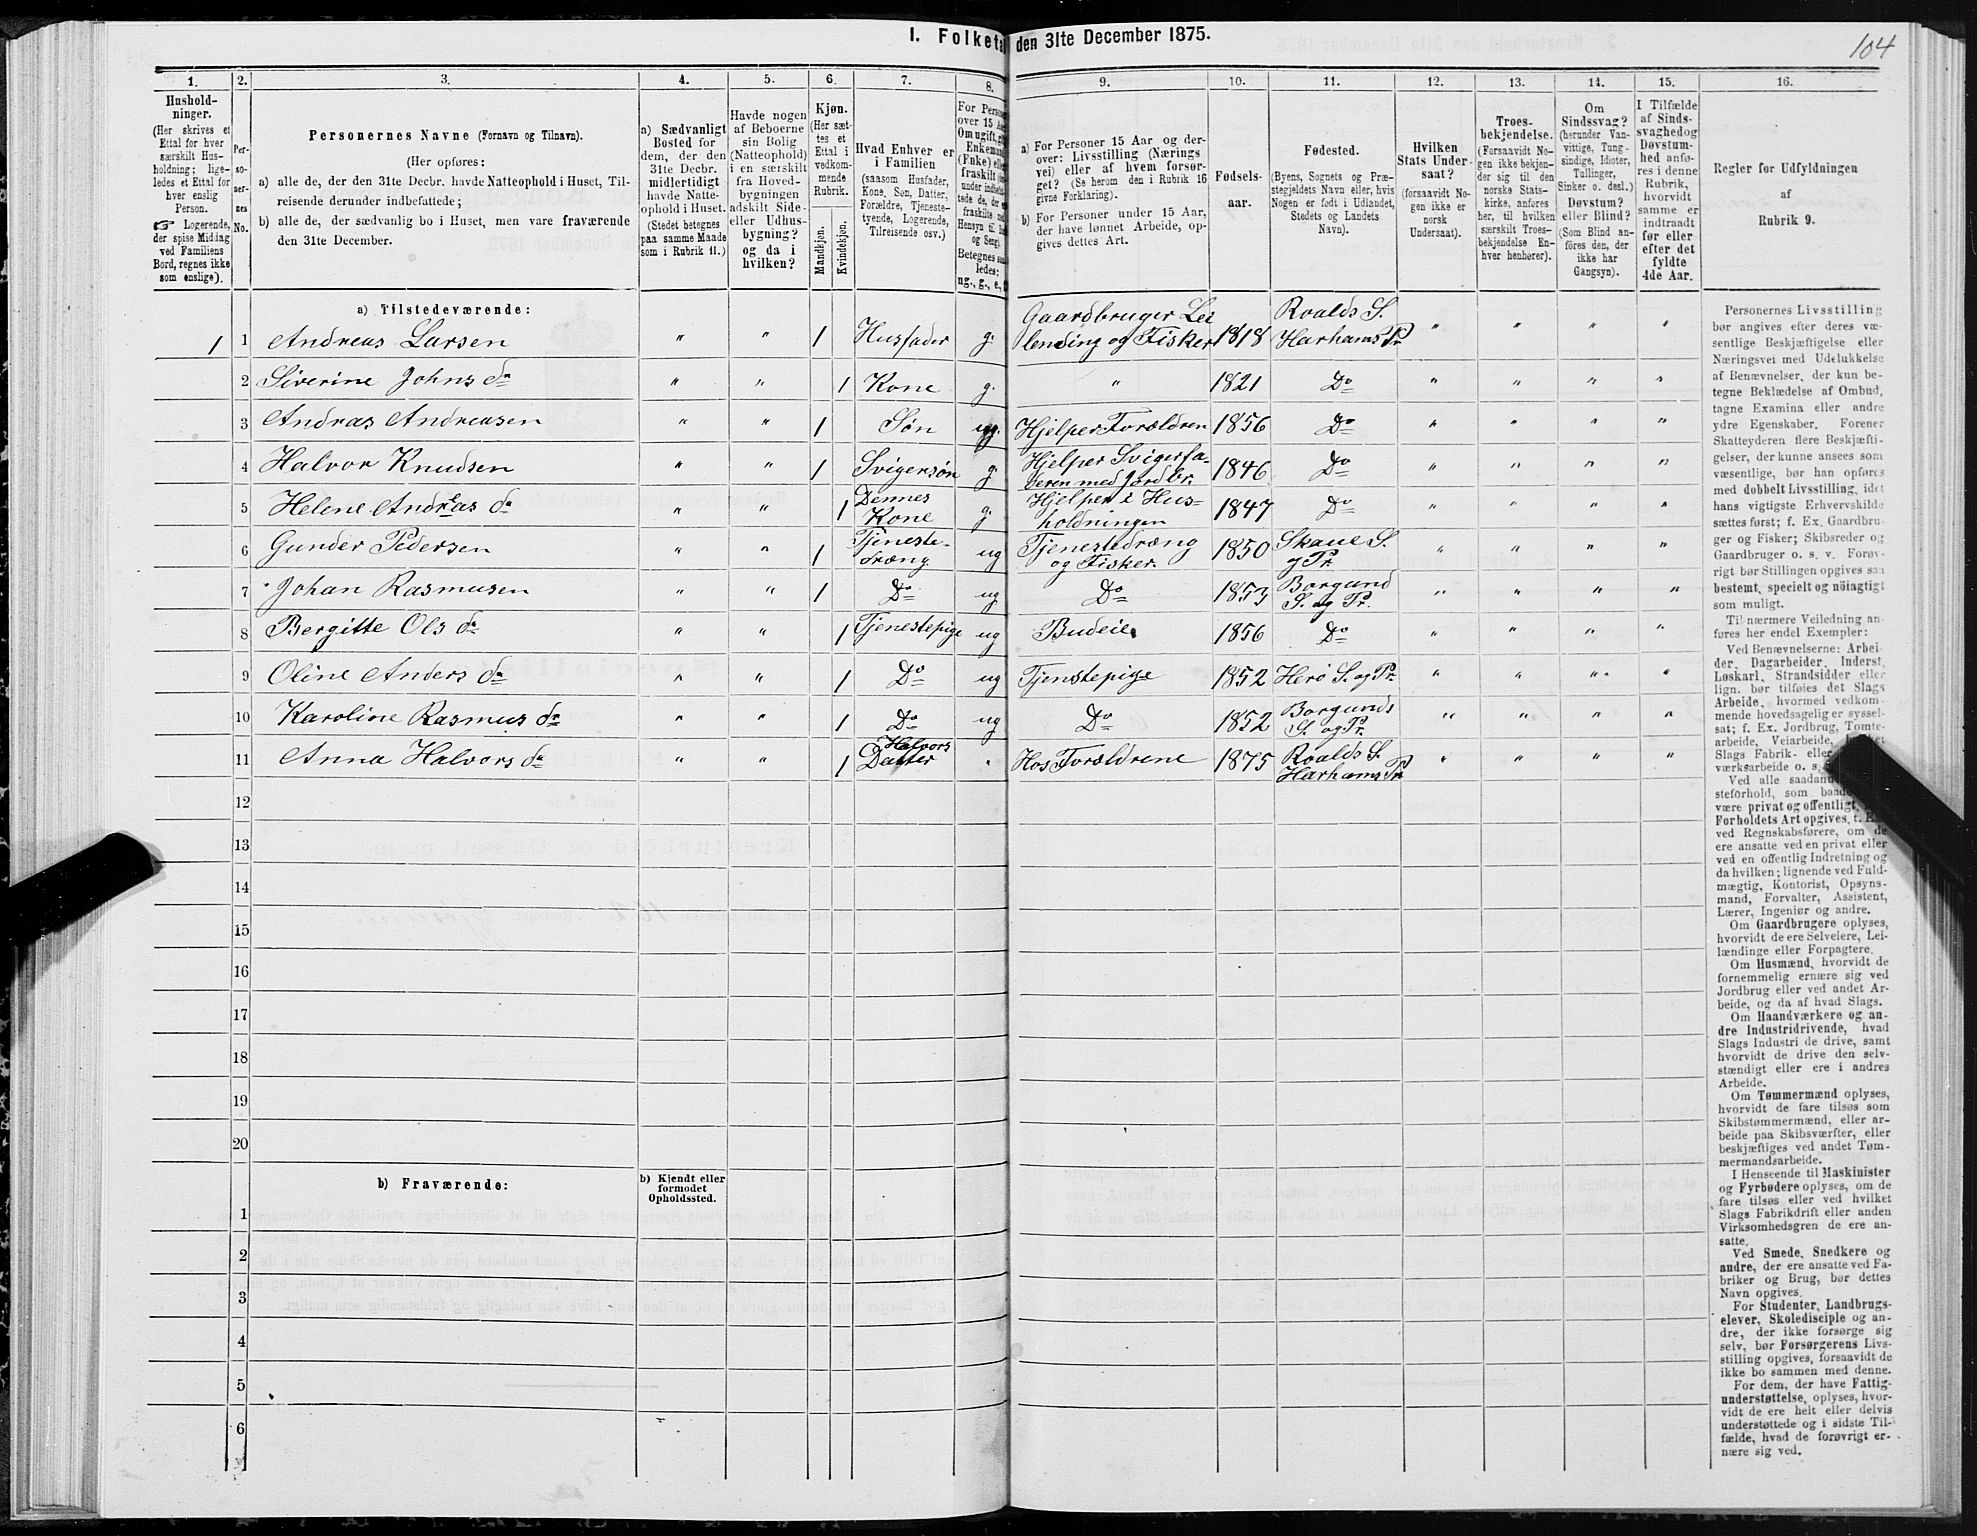 I. Folketal den 31te December 1875.
104
1. 2. 3. 4. 5. 6. 7. 8. 9. 10. 11. 12. 13. 14. 15. 16.
Hushold-
ninger.
(Her skrives et
Ettal for hver
særskilt Hus-
holdning; lige-
ledes et Ettal for
hver enslig
Person.
☞ Logerende,
der spise Middag
ved Familiens
Bord, regnes ikke
som enslige).
Per-
so-
ner-
nes
No.
Personernes Navne (Fornavn og Tilnavn).
(Her opføres:
a) alle de, der den 31te Decbr. havde Natteophold i Huset, Til-
reisende derunder indbefattede;
b) alle de, der sædvanlig bo i Huset, men vare fraværende
den 31te December.
a) Sædvanligt
Bosted for
dem, der den
31te Decbr.
midlertidigt
havde Natte-
ophold i Huset.
(Stedet betegnes
paa samme Maade
som i Rubrik 11.)
Havde nogen
af Beboerne
sin Bolig
(Natteophold)
i en særskilt
fra Hoved-
bygningen
adskilt Side-
eller Udhus-
bygning?
og da i
hvilken?
Kjøn.
(Her sæt-
tes et
Ettal i
vedkom-
mende
Rubrik.
Mandkjøn.
Kvindekjøn.
Hvad Enhver er
i Familien
(saasom Husfader,
Kone, Søn, Datter,
Forældre, Tjeneste-
tyende, Logerende,
Tilreisende osv.)
For Personer
over 15 Aar
Om ugift, gift,
Enkemand
(Enke) eller
fraskilt
ledes:
ug., g., e., f.
a) For Personer 15 Aar og der-
over: Livsstilling (Nærings
vei) eller af hvem forsør-
get? (Se herom den i Rubrik 16
givne Forklaring).
b) For Personer under 15 Aar,
der have lønnet Arbeide, op-
gives dettes Art.
Fødsels-
aar.
Fødested.
(Byens, Sognets og Præ-
stegjeldets Navn eller, hvis
Nogen er født i Udlandet,
Stedets og Landets
Navn).
Hvilken
Stats Under-
saat?
(forsaavidt No-
gen ikke er
norsk
Undersaat).
Troes-
bekjendelse.
(Forsaavidt No-
gen ikke bekjen-
der sig til den
norske Stats-
kirke, anføres
her, til hvilken
særskilt Troes-
bekjendelse En-
hver henhører).
Om
Sindssvag?
(herunder Van-
vittige, Tung-
sindige, Idioter,
Tullinger,
Sinker o. desl.)
Døvstum?
eller Blind?
(Som Blind an-
føres den, der
ikke har
Gangsyn).
I Tilfælde
af Sinds-
svaghed og
Døvstum-
hed anfø-
res i denne
Rubrik,
hvorvidt
samme er
indtraadt
før eller
efter det
fyldte
4de Aar.
Regler for Udfyldningen
af
Rubrik 9.
a) Tilstedeværende:
1 1 Andreas Larsen " " 1 Husfader g. Gaardbruger Lei
lending og Fisker 1818 Roalds S.
Harhams Pr. " " " "
2 Siverine Johns dr " " 1 Kone g. " 1821 Do " " " "
3 Andras Andreasen " " 1 Søn ug. Hjelper Forældren 1856 Do " " " "
4 Halvor Knudsen " " 1 Svigersøn g. Hjelper Svigerfa-
deren med Jordbr. 1846 Do " " " "
5 Helene Andreas dr " " 1 Dennes
Kone g. Hjelper i Hus-
holdningen 1847 Do " " " "
6 Gunder Pedersen " " 1 Tjeneste-
dræng ug Tjenestedræng
og Fisker. 1850 Skaue S.
og Pr. " " " "
7 Johan Rasmusen " " 1 Do ug Do 1853 Borgund
S. og Pr. " " " "
8 Bergitte Ols dr " " 1 Tjenestepige ug Budeie 1856 Do " " " "
9 Oline Anders dr " " 1 Do ug Tjenstepige 1852 Herö S. og Pr. " " " "
10 Karoline Rasmus dr " " 1 Do ug Do 1852 Borgunds
S. og Pr. " " " "
11 Anna Halvors dr " " 1 Halvors
Datter " Hos Forældrene 1875 Roalds S.
Harhams Pr. " " " "
12
13
14
15
16
17
18
19
20
b) Fraværende:
b) Kjendt eller
formodet
Opholdssted.
1
2
3
4
5
6
Personernes Livsstilling
bør angives efter deres væ-
sentlige Beskjæftigelse eller
Næringsvei med Udelukkelse
af Benævnelser, der kun be-
tegne Beklædelse af Ombud,
tagne Examina eller andre
ydre Egenskaber. Forener
Skatteyderen flere Beskjæfti-
gelser, der kunne ansees som
væsentlige, bør han opføres
med dobbelt Livsstilling, idet
hans vigtigste Erhvervskilde
sættes først; f. Ex. Gaardbru-
ger og Fisker; Skibsreder og
Gaardbruger o. s. v. Forøv-
rigt bør Stillingen opgives saa
bestemt, specielt og nöiagtigt
som muligt.
Til nærmere Veiledning an-
føres her endel Exempler:
Ved Benævnelserne: Arbei-
der, Dagarbeider, Inderst,
Løskarl, Strandsidder eller
lign. bør tilføies det Slags
Arbeide, hvormed vedkom-
mende hovedsagelig er syssel-
sat; f. Ex. Jordbrug, Tomte-
arbeide, Veiarbeide,
Slags Fabrik- eller
værksarbeide o. s.
Ved alle saadanne
steforhold, som baade
være privat og offentligt,
Forholdets Art opgives, f. Ex.
ved Regnskabsførere, om de
ere ansatte ved en privat eller
ved en offentlig Indretning og
da hvilken; lignende ved Fuld-
mægtig, Kontorist, Opsyns-
mand, Forvalter, Assistent,
Lærer, Ingeniør og andre.
Om Gaardbrugere oplyses,
hvorvidt de ere Selveiere, Lei-
lændinge eller Forpagtere.
Om Husmænd, hvorvidt de
fornemmelig ernære sig ved
Jordbrug eller ved andet Ar-
beide, og da af hvad Slags.
Om Haandværkere og an-
dre Industridrivende, hvad
Slags Industri de drive, samt
hvorvidt de drive den selv-
stændigt eller ere i andres
Arbeide.
Om Tømmermænd oplyses,
hvorvidt de fare tilsøs som
Skibstømmermænd, eller ar-
beide paa Skibsværfter, eller
beskjæftiges ved andet Tøm-
mermandsarbeide.
I Henseende til Maskinister
og Fyrbødere oplyses, om de
fare tilsøs eller ved hvilket
Slags Fabrikdrift eller anden
Virksomhedsgren de ere an-
satte.
Ved Smede, Snedkere og
andre, der ere ansatte ved Fa-
briker og Brug, bør dettes
Navn opgives.
For Studenter, Landbrugs-
elever, Skoledisciple og an-
dre, der ikke forsørge sig
selv, bør Forsørgerens Livs-
stilling opgives, forsaavidt de
ikke bo sammen med denne.
For dem, der have Fattig-
understøttelse, oplyses, hvor-
vidt de ere helt eller delvis
understøttede og i sidste Til-
fælde, hvad de forøvrigt er-
nære sig ved.